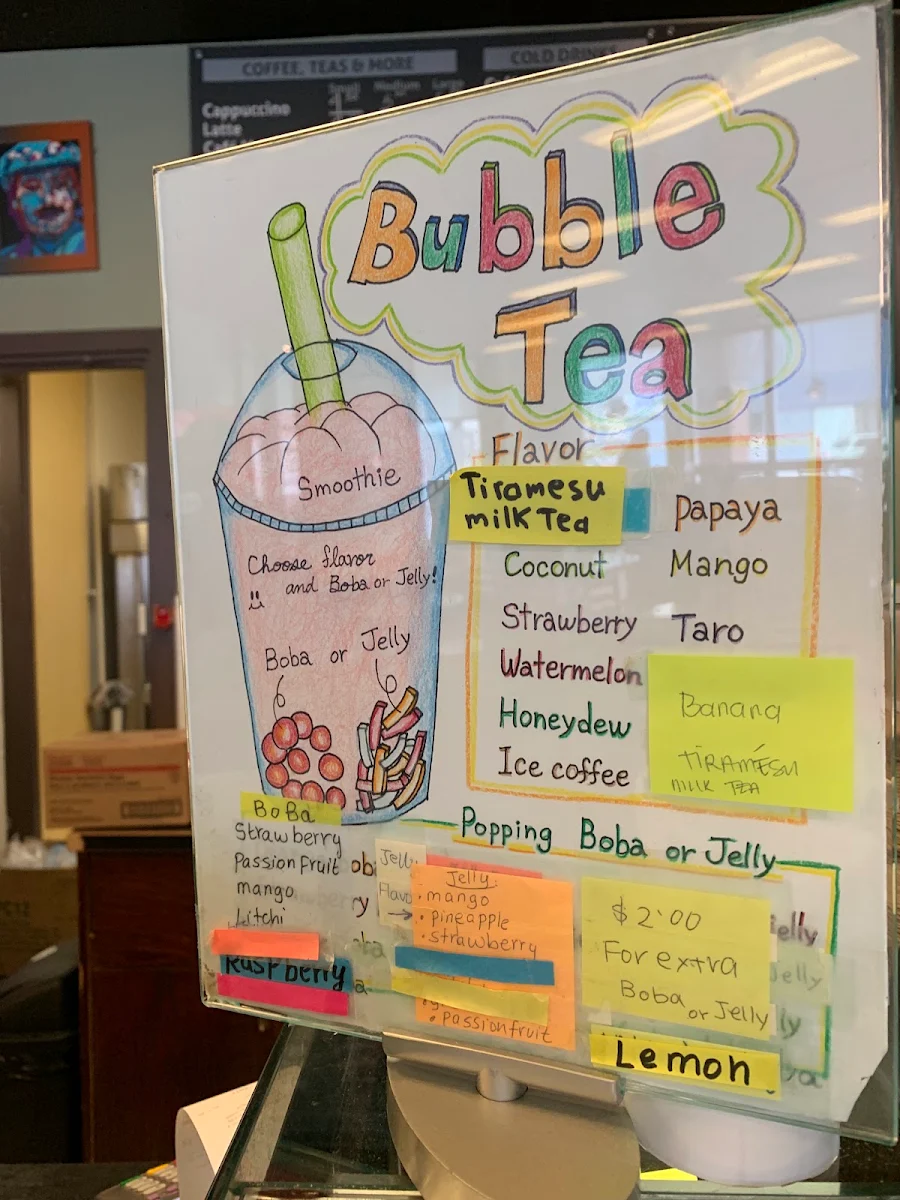 COFFEE, TEAS & MORE
COLD DRINKS
Small Medium Large
Cappuccino
Latte
Bubble
Tea
Smoothie
Choose flavor
and Boba or Jelly!
Boba or Jelly
Flavor
Tiromesu
milk Tea
Coconut
Strawberry
Watermelon
Honeydew
Ice coffee
Papaya
Mango
Taro
Banana
TiRAMÉSU
MILK TEA
Popping Boba or Jelly
BoBa
Strawberry
Passion fruit
mango
Litchi
Raspberry
Jelly
Flavo
→
Jelly:
• mango
• pineapple
• strawberry
• passionfruit
$2.00
For extra
Boba
or Jelly
Lemon